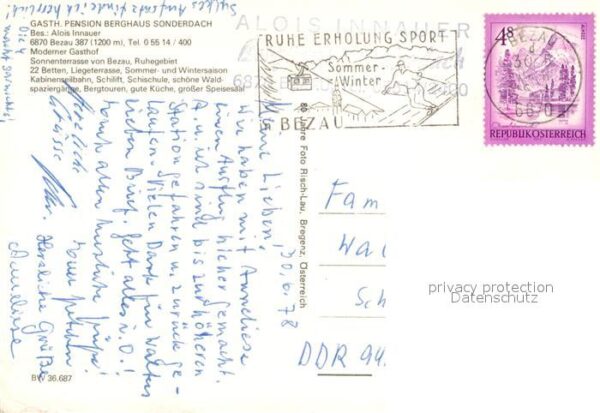 GASTH. PENSION BERGHAUS SONDERDACH
Bes.: Alois Innauer
6870 Bezau 387 (1200 m), Tel. 0 55 14 / 400
Moderner Gasthof
Sonnenterrasse von Bezau, Ruhegebiet
22 Betten, Liegeterrasse, Sommer- und Wintersaison
Kabinenseilbahn, Schilift, Schischule, schöne Wald-
spaziergänge, Bergtouren, gute Küche, großer Speisesaal
ALOIS INNAUER
RUHE ERHOLUNG SPORT
Sommer-
Winter
BEZAU
BEZAU
6870
4 S
REPUBLIK ÖSTERREICH
80 Jahre Foto Risch-Lau, Bregenz, Österreich
30.6.78
Meine Lieben!
Wir haben mit Anneliese
einen Ausflug hierher gemacht.
sind bis zur höheren
Station gefahren u. zurück ge-
laufen. Vielen Dank für Walters
Brief. Geht alles i.O.!
Herzliche Grüße
Anneliese
Herzliche
Grüsse
Fam
Wal
Sch
DDR 94
privacy protection
Datenschutz
BW 36.687